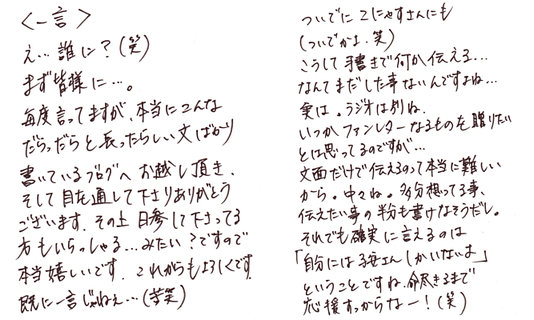 ＜一言＞
え…誰に?(笑)
まず皆様に…。
毎度言ってますが、本当にこんな
だらっだらと長ったらしい文ばかり
書いているブログへお越し頂き、
そして目を通して下さりありがとう
ございます。その上日参して下さってる
方もいらっしゃる…みたい?ですので
本当嬉しいです。これからもよろしくです。
既に一言じゃねぇ…(苦笑)
ついでにこにゃすさんにも
(ついでかよ.笑)
こうして手書きで何か伝える…
なんてまだした事ないんですよね…
実は。ラジオは別ね。
いつかファンレターなるものを贈りたい
とは思ってるのですが…
文面だけで伝えるのって本当に難しい
から。中々ね。多分想ってる事、
伝えたい事の半分も書けなそうだし。
それでも確実に言えるのは
「自分には さんしかいないよ」
ということですね。命尽きるまで
応援すっからなー!(笑)